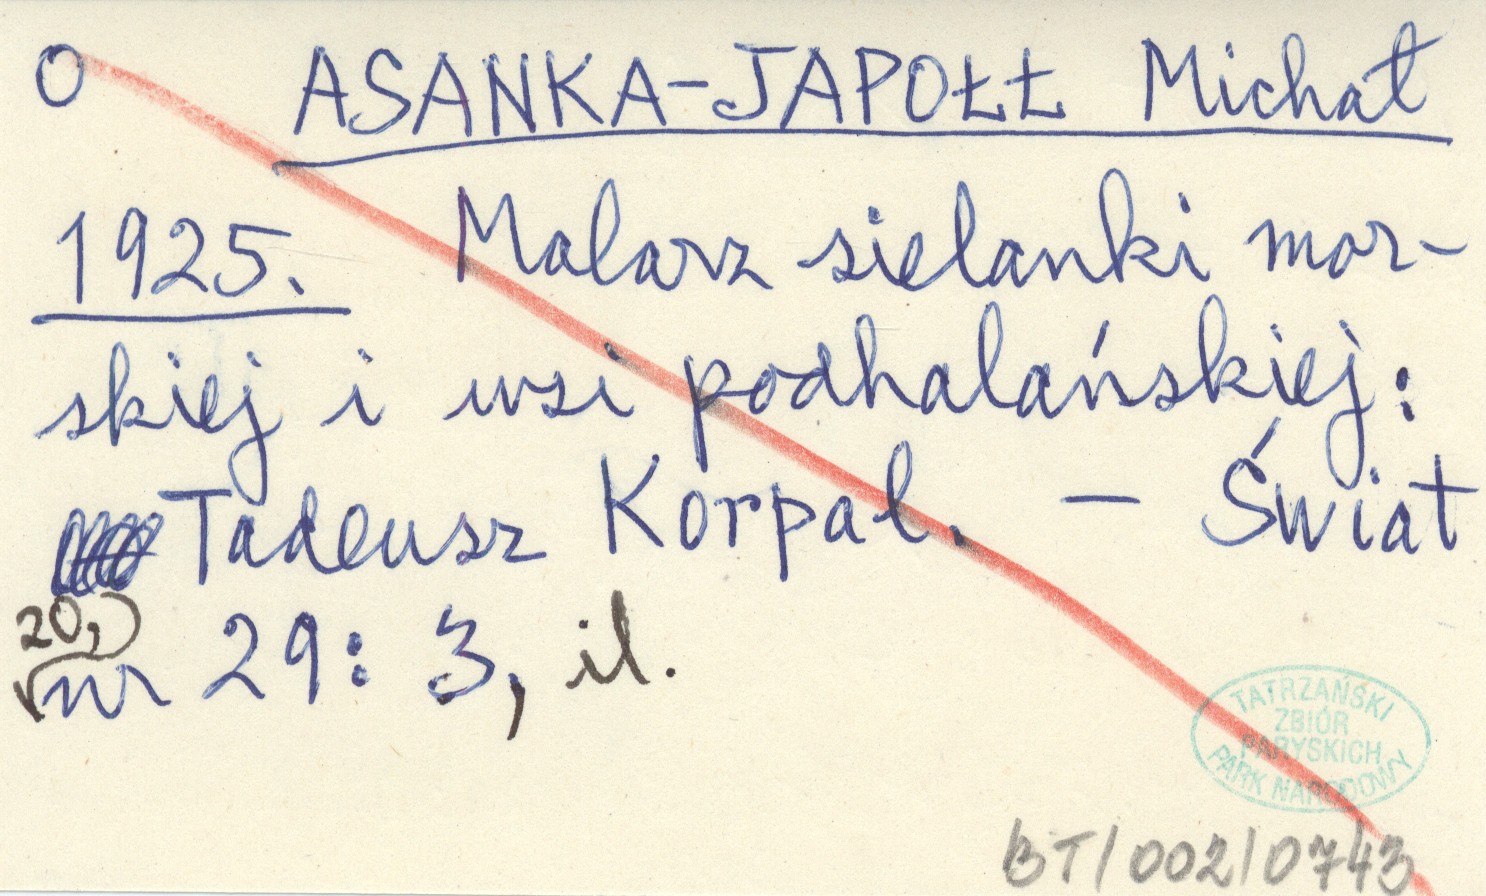 O ASANKA-JAPOŁŁ Michał
1925. Malarz sielanki mor-
skiej i wsi podhalańskiej:
Tadeusz Korpal. – Świat
20,
nr 29: 3, il.
TATRZAŃSKI
ZBIÓR
PARYSKICH
PARK NARODOWY
BT/002/0743